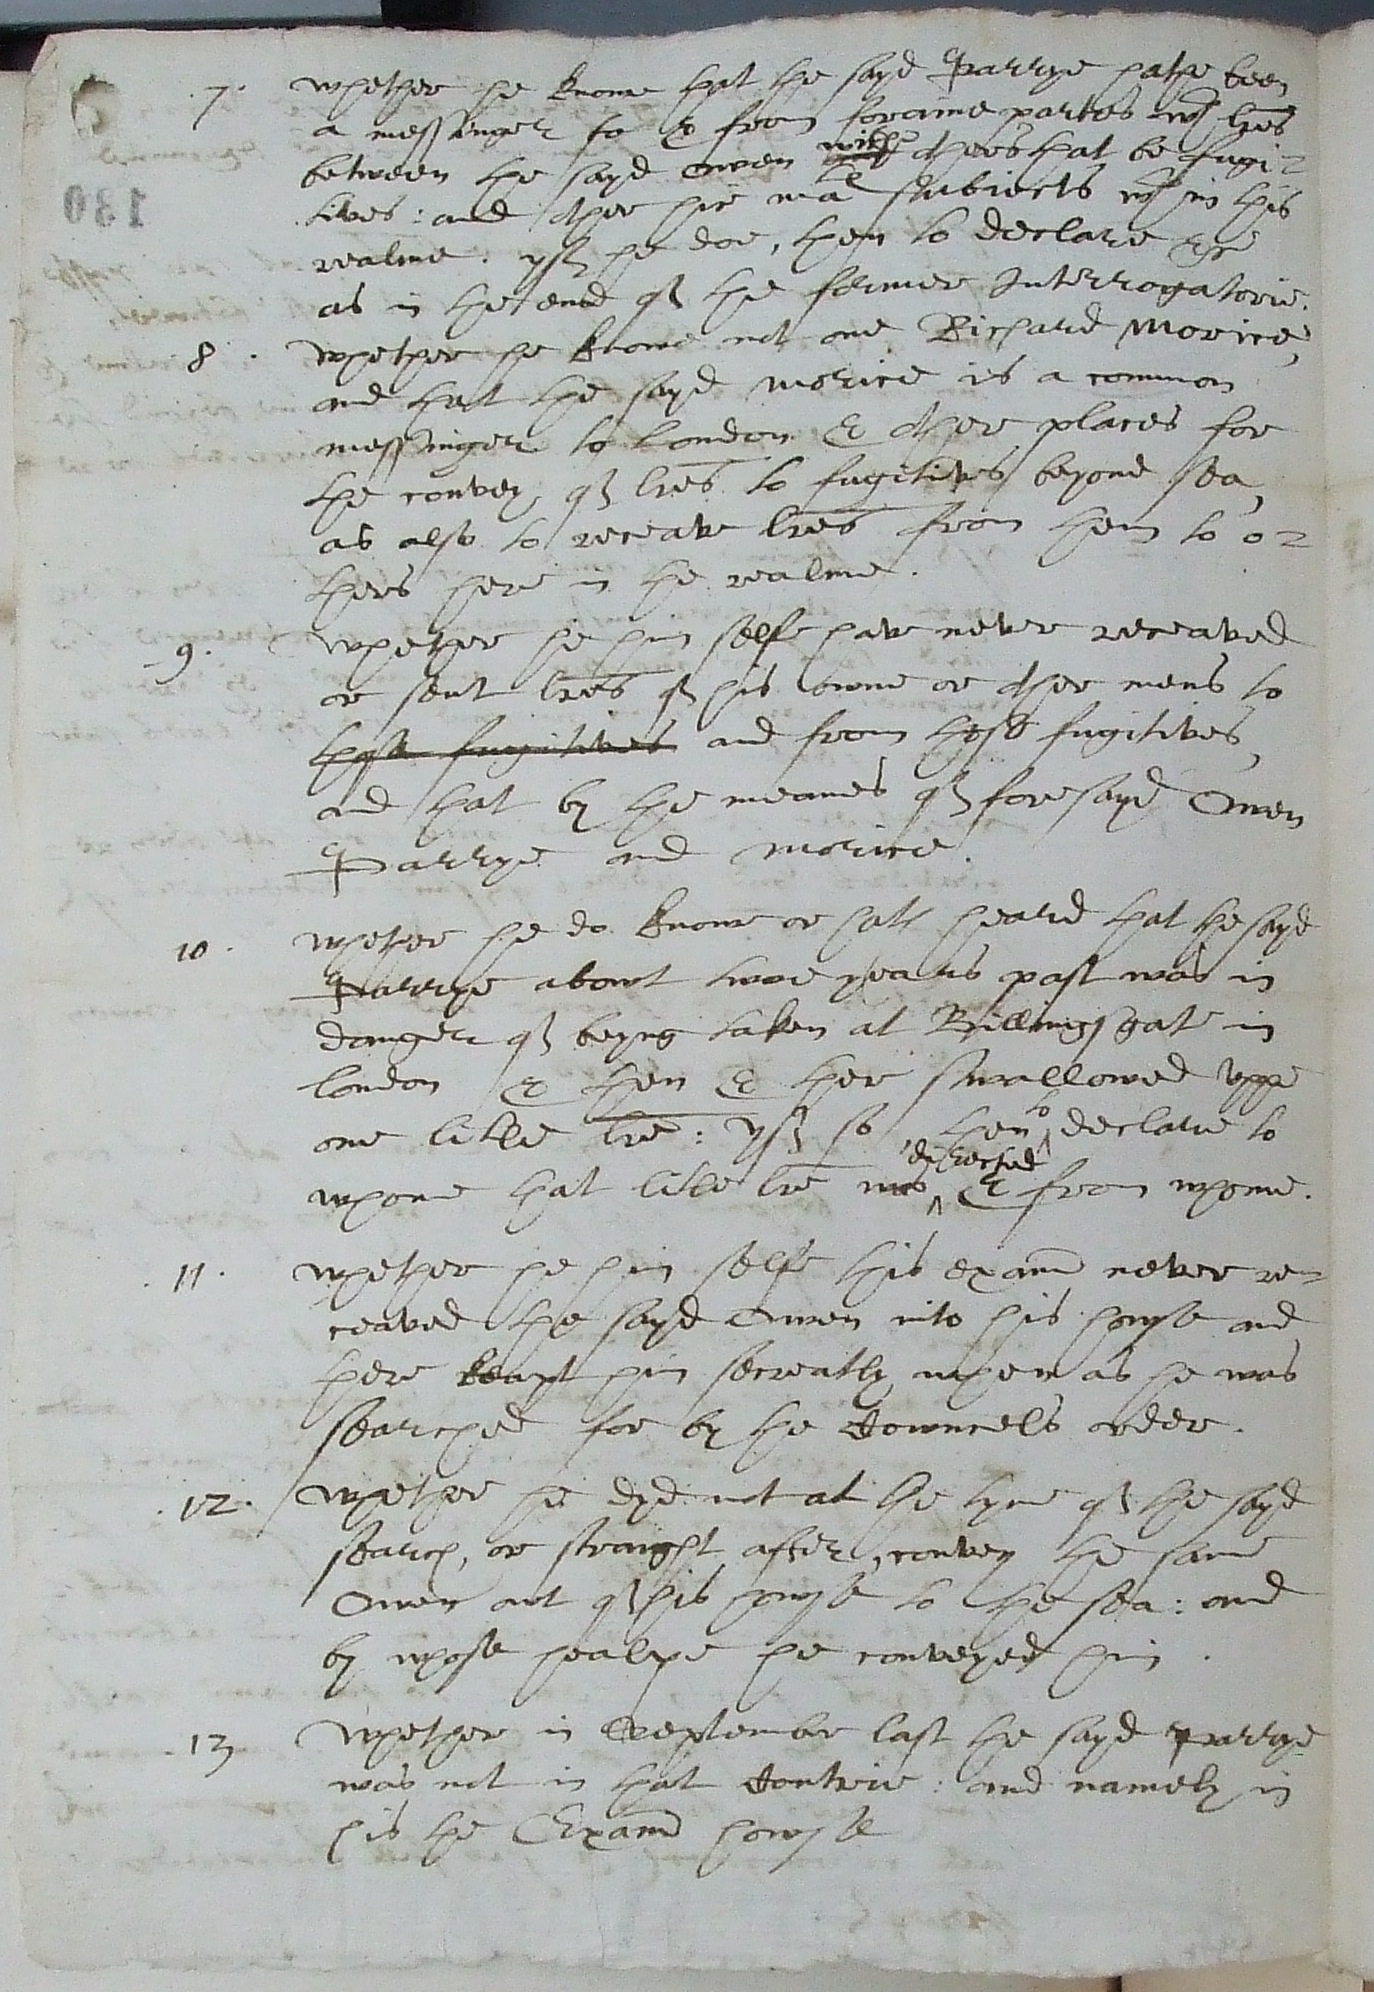 7. whether he knowe that the sayd Parrye hathe been
a messinger to & from foraine partes wth lres
between the sayd Owen with others that be fugi-
tives: and other hir mati subiects wth in this
realme. yf he doe, then to declare &c
as in the end of the former Interrogatorie.
8. whether he knowe not one Richard Morice,
and that the sayd Morice is a common
messinger to London & other places for
the convey of lres to fugitives beyond sea,
as also to receave lres from them to o-
thers here in the realme.
9. whether he him self have never receaved
or sent lres of his owne or other mens to
those fugitives and from those fugitives,
and that by the meanes of foresayd Owen
Parrye and Morice.
10. whether he do knowe or hath heard that the sayd
Parrye about twoe years past was in
danger of beyng taken at Billingsgate in
London & then & ther swallowed uppe
one little lre: yf so, then to declare to
whome that litle lre was directed & from whome.
11. whether he him self this examd never re-
ceaved the sayd Owen into his howse and
there keapt him secreatly when as he was
searched for by the Cowncels order.
12. whether he dyd not at the tyme of the sayd
search, or straight after, convey the same
Owen out of his howse to the sea: and
by whose healpe he conveyed him.
13 Whether in September last the sayd Parrye
was not in that Contrie: and namely in
his the Examd howse
130